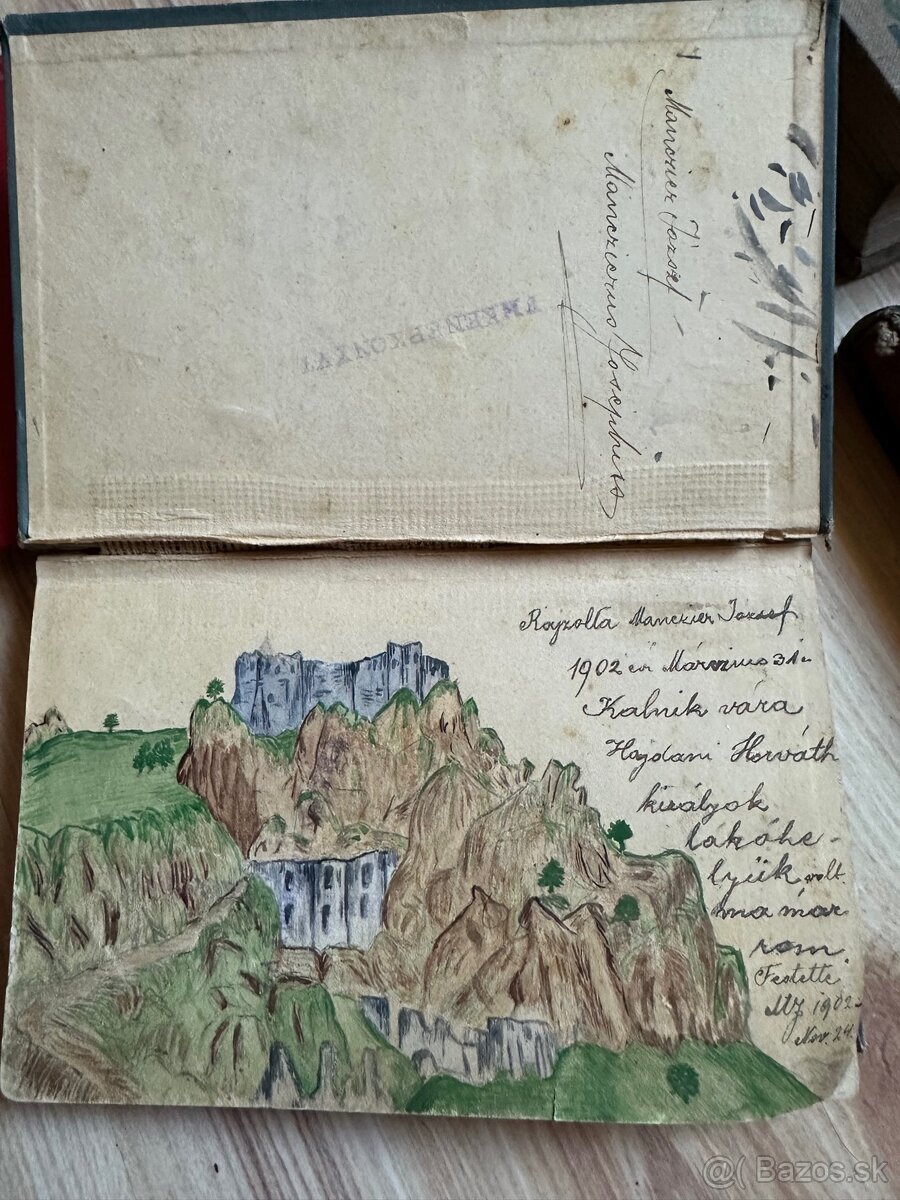 Manczier József
Manczierus Josephus
Rajzolta Manczier József
1902 év Márvius 31.
Kalnik vára
Hajdani Horváth
királyok
lakóhe-
lyük volt.
ma már
rom
Festette
MJ 1902
Nov. 24.
@( Bazos.sk